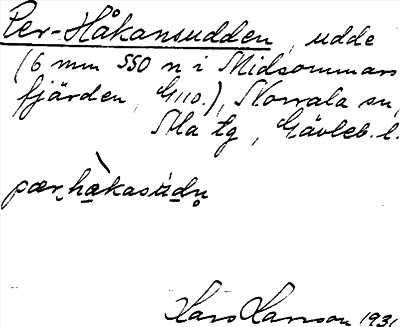 Per-Håkansudden, udde
(6 mm SSO n i Midsommars
fjärden, G110.), Norrala sn,
Ala tg, Gävleb. l.
pær hakasùdn
Hans Hanson 1931